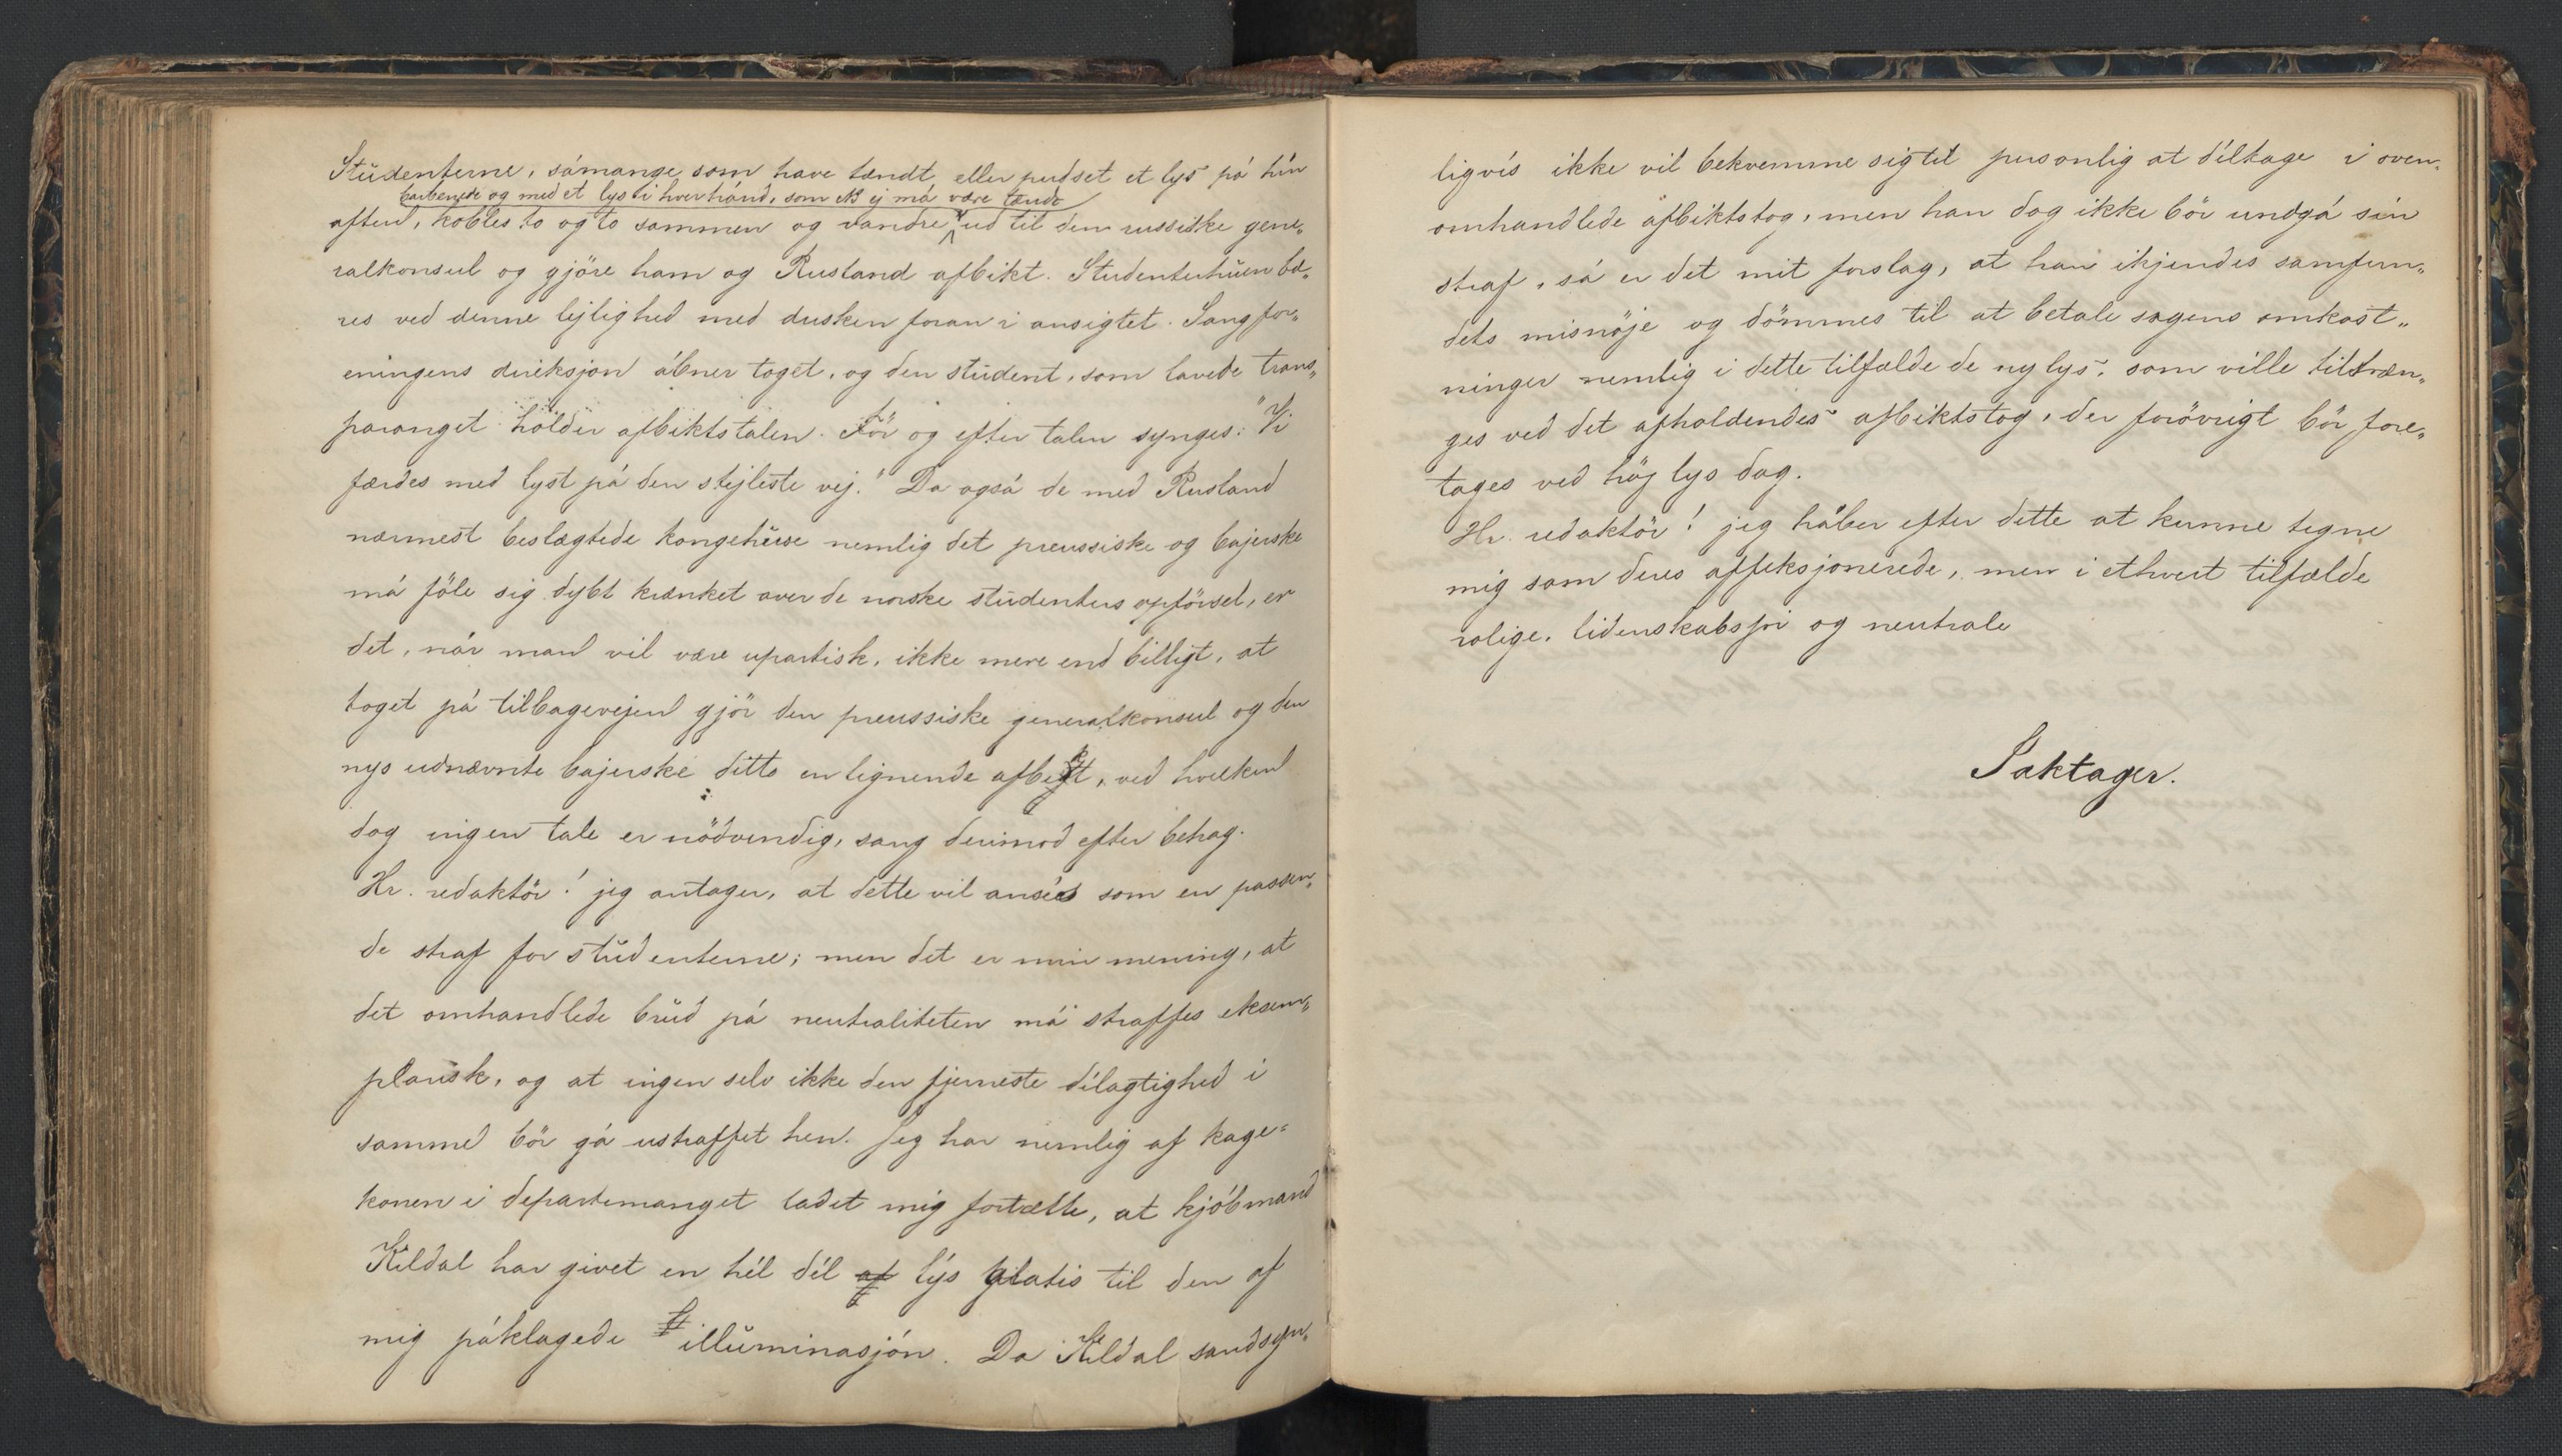 Studenterne, såmange som have tændt eller pudset et lys på hin
barbenede og med et lys i hver hånd, som NB ej må være tændt
aften, kobles to og to sammen og vandre ud til den russiske gene„
ralkonsul og gjöre ham og Rusland afbikt. Studenterhuen bæ„
res ved denne lejlighed med dusken foran i ansigtet. Sangfor„
eningens direksjon åbner toget, og den student, som lavede trans„
paranget holder afbiktstalen. Før og efter talen synges: "Vi
færdes med lyst på den stejleste vej." Da også de med Rusland
nærmest beslægtede kongehuse nemlig det preussiske og bajerske
må föle sig dybt krænket over de norske studenters opförsel, er
det, når man vil være upartisk, ikke mere end billigt, at
toget på tilbagevejen gjör den preussiske generalkonsul og den
nys udnævnte bajerske ditto en lignende afbikt, ved hvilken
dog ingen tale er nödvendig, sang derimod efter behag.
Hr. redaktör! jeg antager, at dette vil ansées som en passen„
de straf for studenterne; men det er min mening, at
det omhandlede brud på neutraliteten må straffes eksem„
plarisk, og at ingen selv ikke den fjerneste délagtighed i
samme bör gå ustraffet hen. Jeg har nemlig af kage„
konen i departemanget ladet mig fortælle, at kjöbmand
Kildal har givet en hél dél af lys gratis til den af
mig påklagede illuminasjón. Da Kildal sandsyn„
ligvis ikke vil bekvemme sig til personlig at déltage i oven„
omhandlede afbiktstog, men han dog ikke bör undgå sin
straf, så er det mit forslag, at han ikjendes samfun„
dets misnöje og dömmes til at betale sagens omkost„
ninger nemlig i dette tilfælde de ny lys, som ville tiltræn„
ges ved det afholdendes afbiktstog, der forövrigt bör fore„
tages ved höj lys dag.
Hr. redaktör! jeg håber efter dette at kunne tegne
mig som deres affeksjonerede, men i ethvert tilfælde
rolige, lidenskabsfri og neutrale
Saktager.